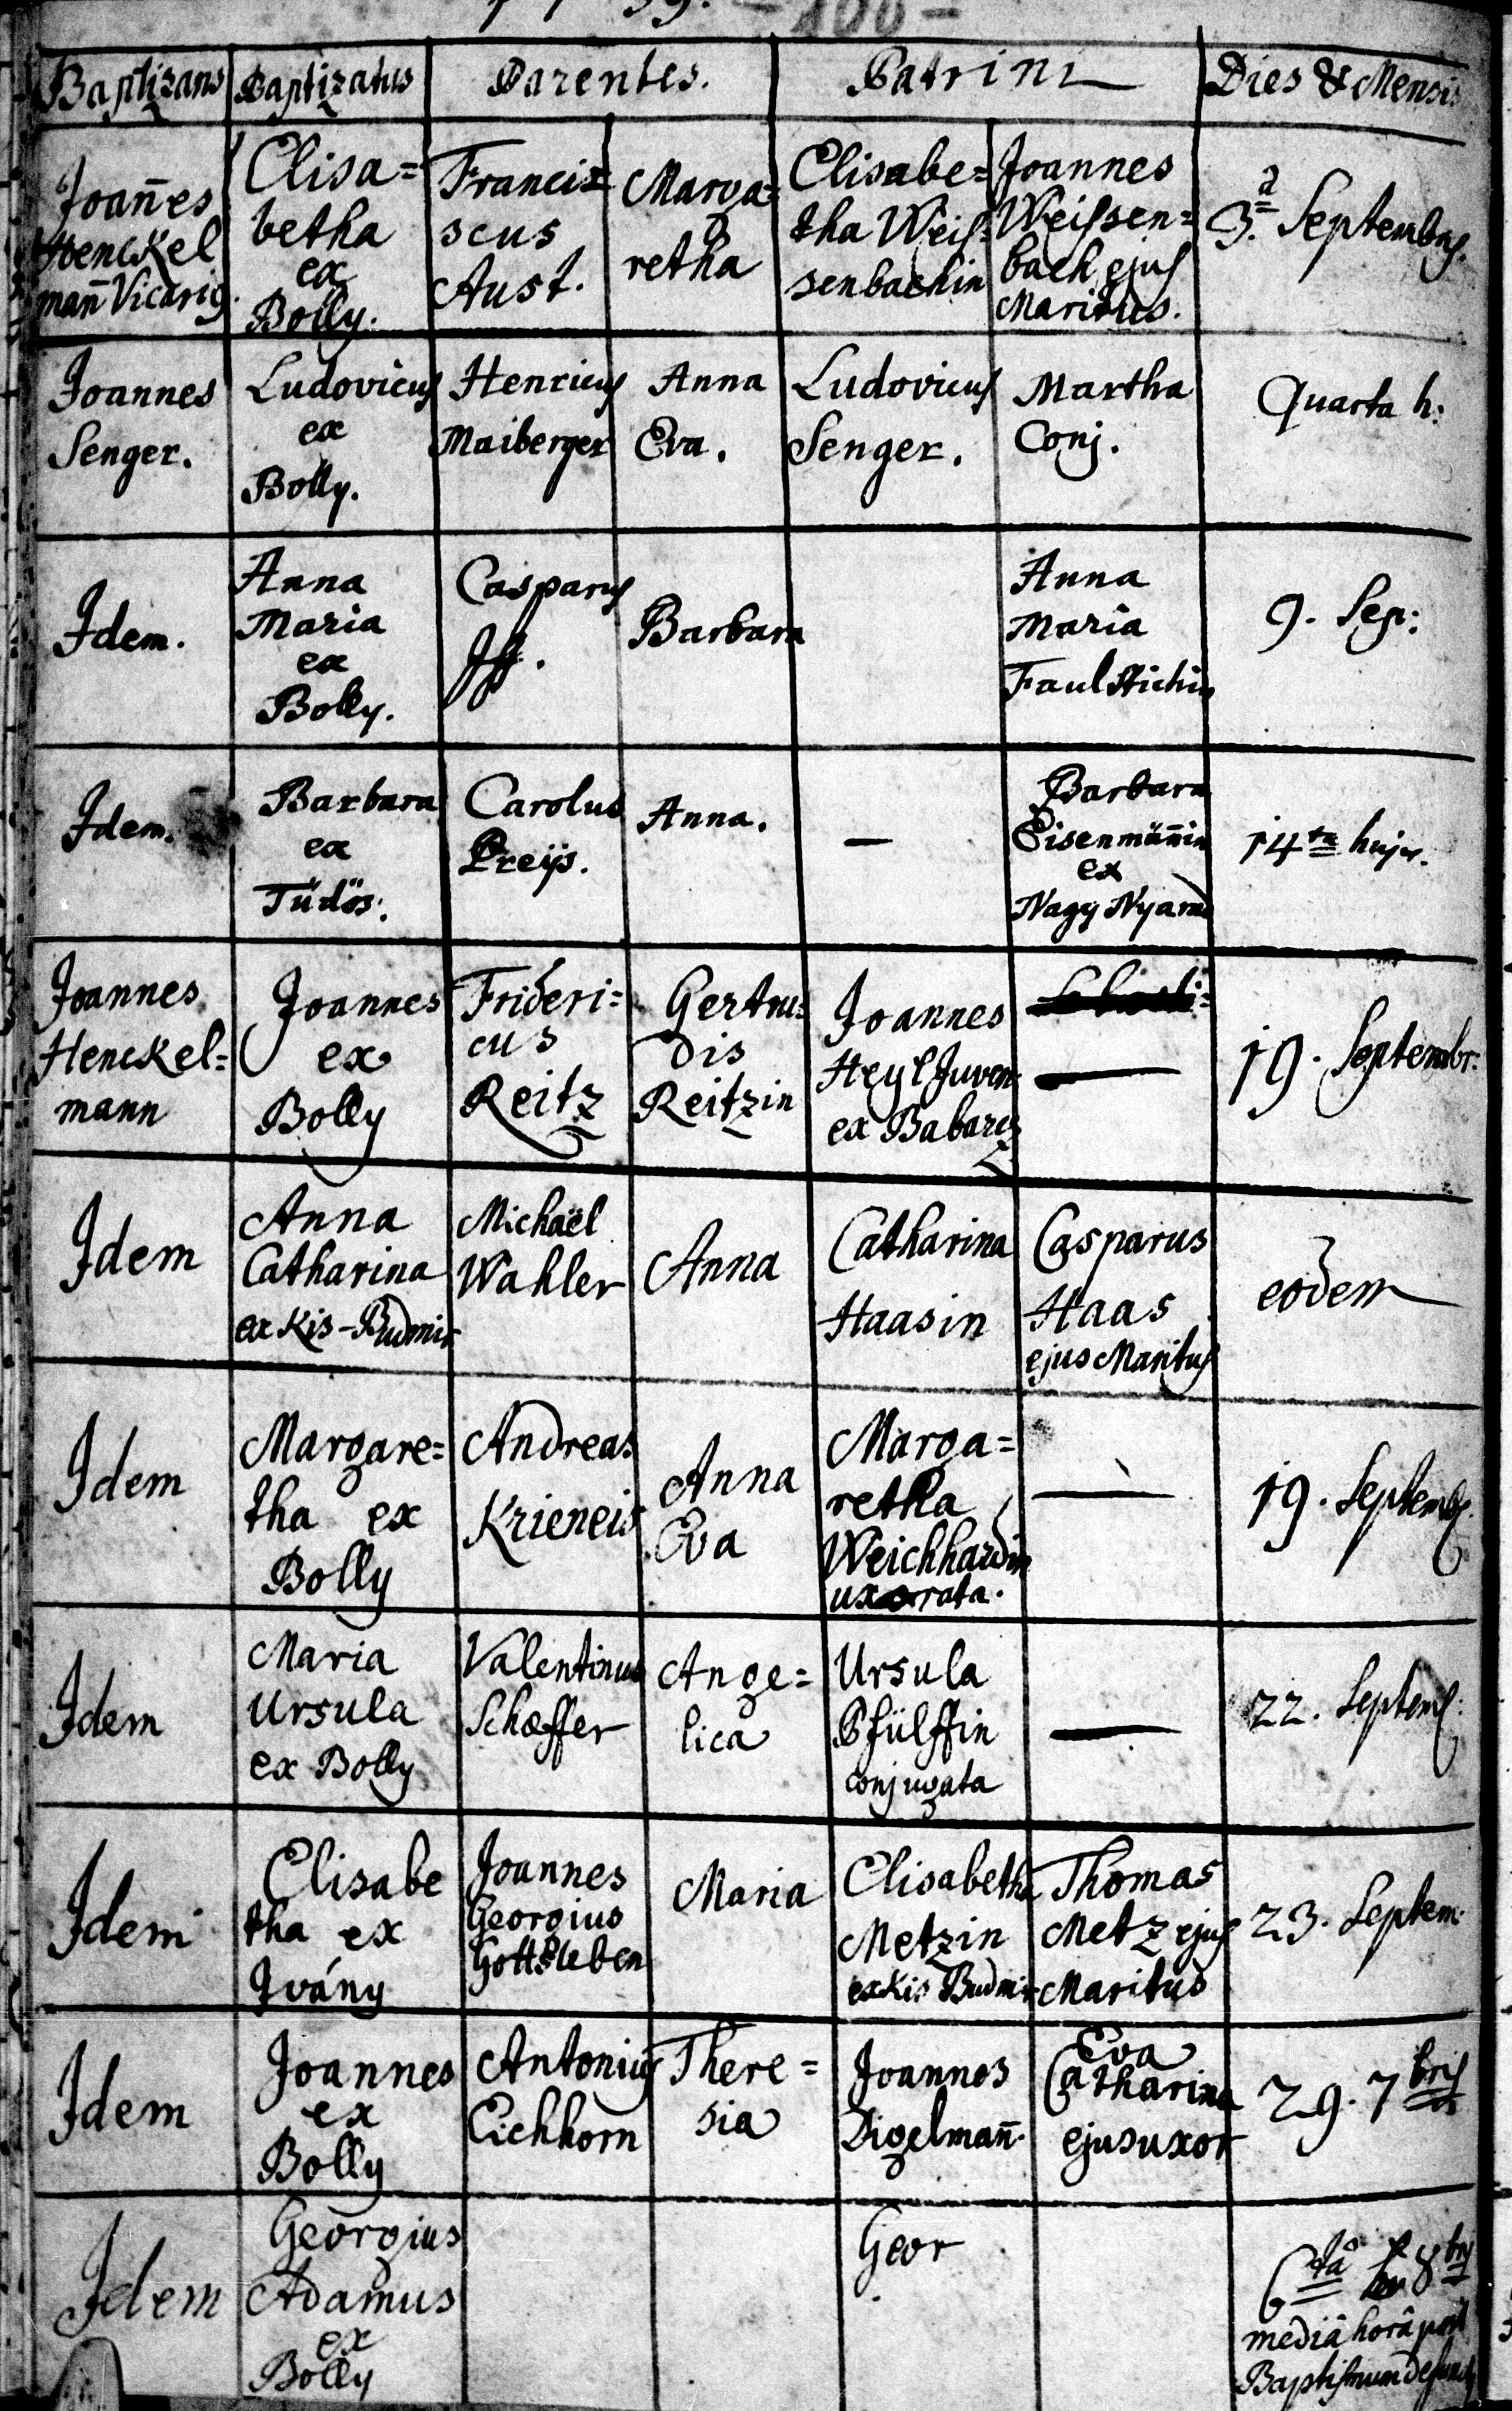 - 100 -
Baptizans Baptizatus Parentes. Patrini Dies & Mensis
Joañes
Henckel
mañ Vicarig
Elisa=
betha
ex
Bolly.
Francis=
scus
Aust.
Marga=
retha
Elisabe=
tha Weis=
senbachin
Joannes
Weissen=
bach ejus
Maritus.
3.a Septembris.
Joannes
Senger.
Ludovicus
ex
Bolly.
Henricus
Maiberger
Anna
Eva.
Ludovicus
Senger.
Martha
Conj.
Quarta h:
Idem.
Anna
Maria
ex
Bolly.
Casparus
Barbara
Anna
Maria
Faulstichin
9. Sep:
Idem.
Barbara
ex
Tüdös.
Carolus
Preijs.
Anna.
—
Barbara
Eisenmäñin
ex
Nagy Nyarad
14ta hujus.
Joannes
Henckel=
mann
Joannes
ex
Bolly
Frideri=
cus
Reitz
Gertru=
dis
Reitzin
Joannes
Heyl Juven:
ex Babarcz
—
19. Septembr:
Idem
Anna
Catharina
ex Kis-Budmir
Michaël
Wahler
Anna
Catharina
Haasin
Casparus
Haas
ejus Maritus
eodem
Idem
Margare=
tha ex
Bolly
Andreas
Krieneis
Anna
Eva
Marga=
retha
Weichhardin
uxorata.
—
19. Septemb.
Idem
Maria
Ursula
ex Bolly
Valentinus
Schæffer
Ange=
lica
Ursula
Pfülffin
conjugata
—
22. Septem:
Idem
Elisabe
tha ex
Ivány
Joannes
Georgius
Gottsleben
Maria
Elisabetha
Metzin
ex Kis Budmir
Thomas
Metz ejus
Maritus
23. Septem:
Idem
Joannes
ex
Bolly
Antonius
Eichhorn
There=
sia
Joannes
Digelmañ.
Eva
Catharina
ejus uxor
29. 7bris
Idem
Georgius
Adamus
ex
Bolly
Geor
6tâ 8bris
mediâ horâ post
Baptismum defunct